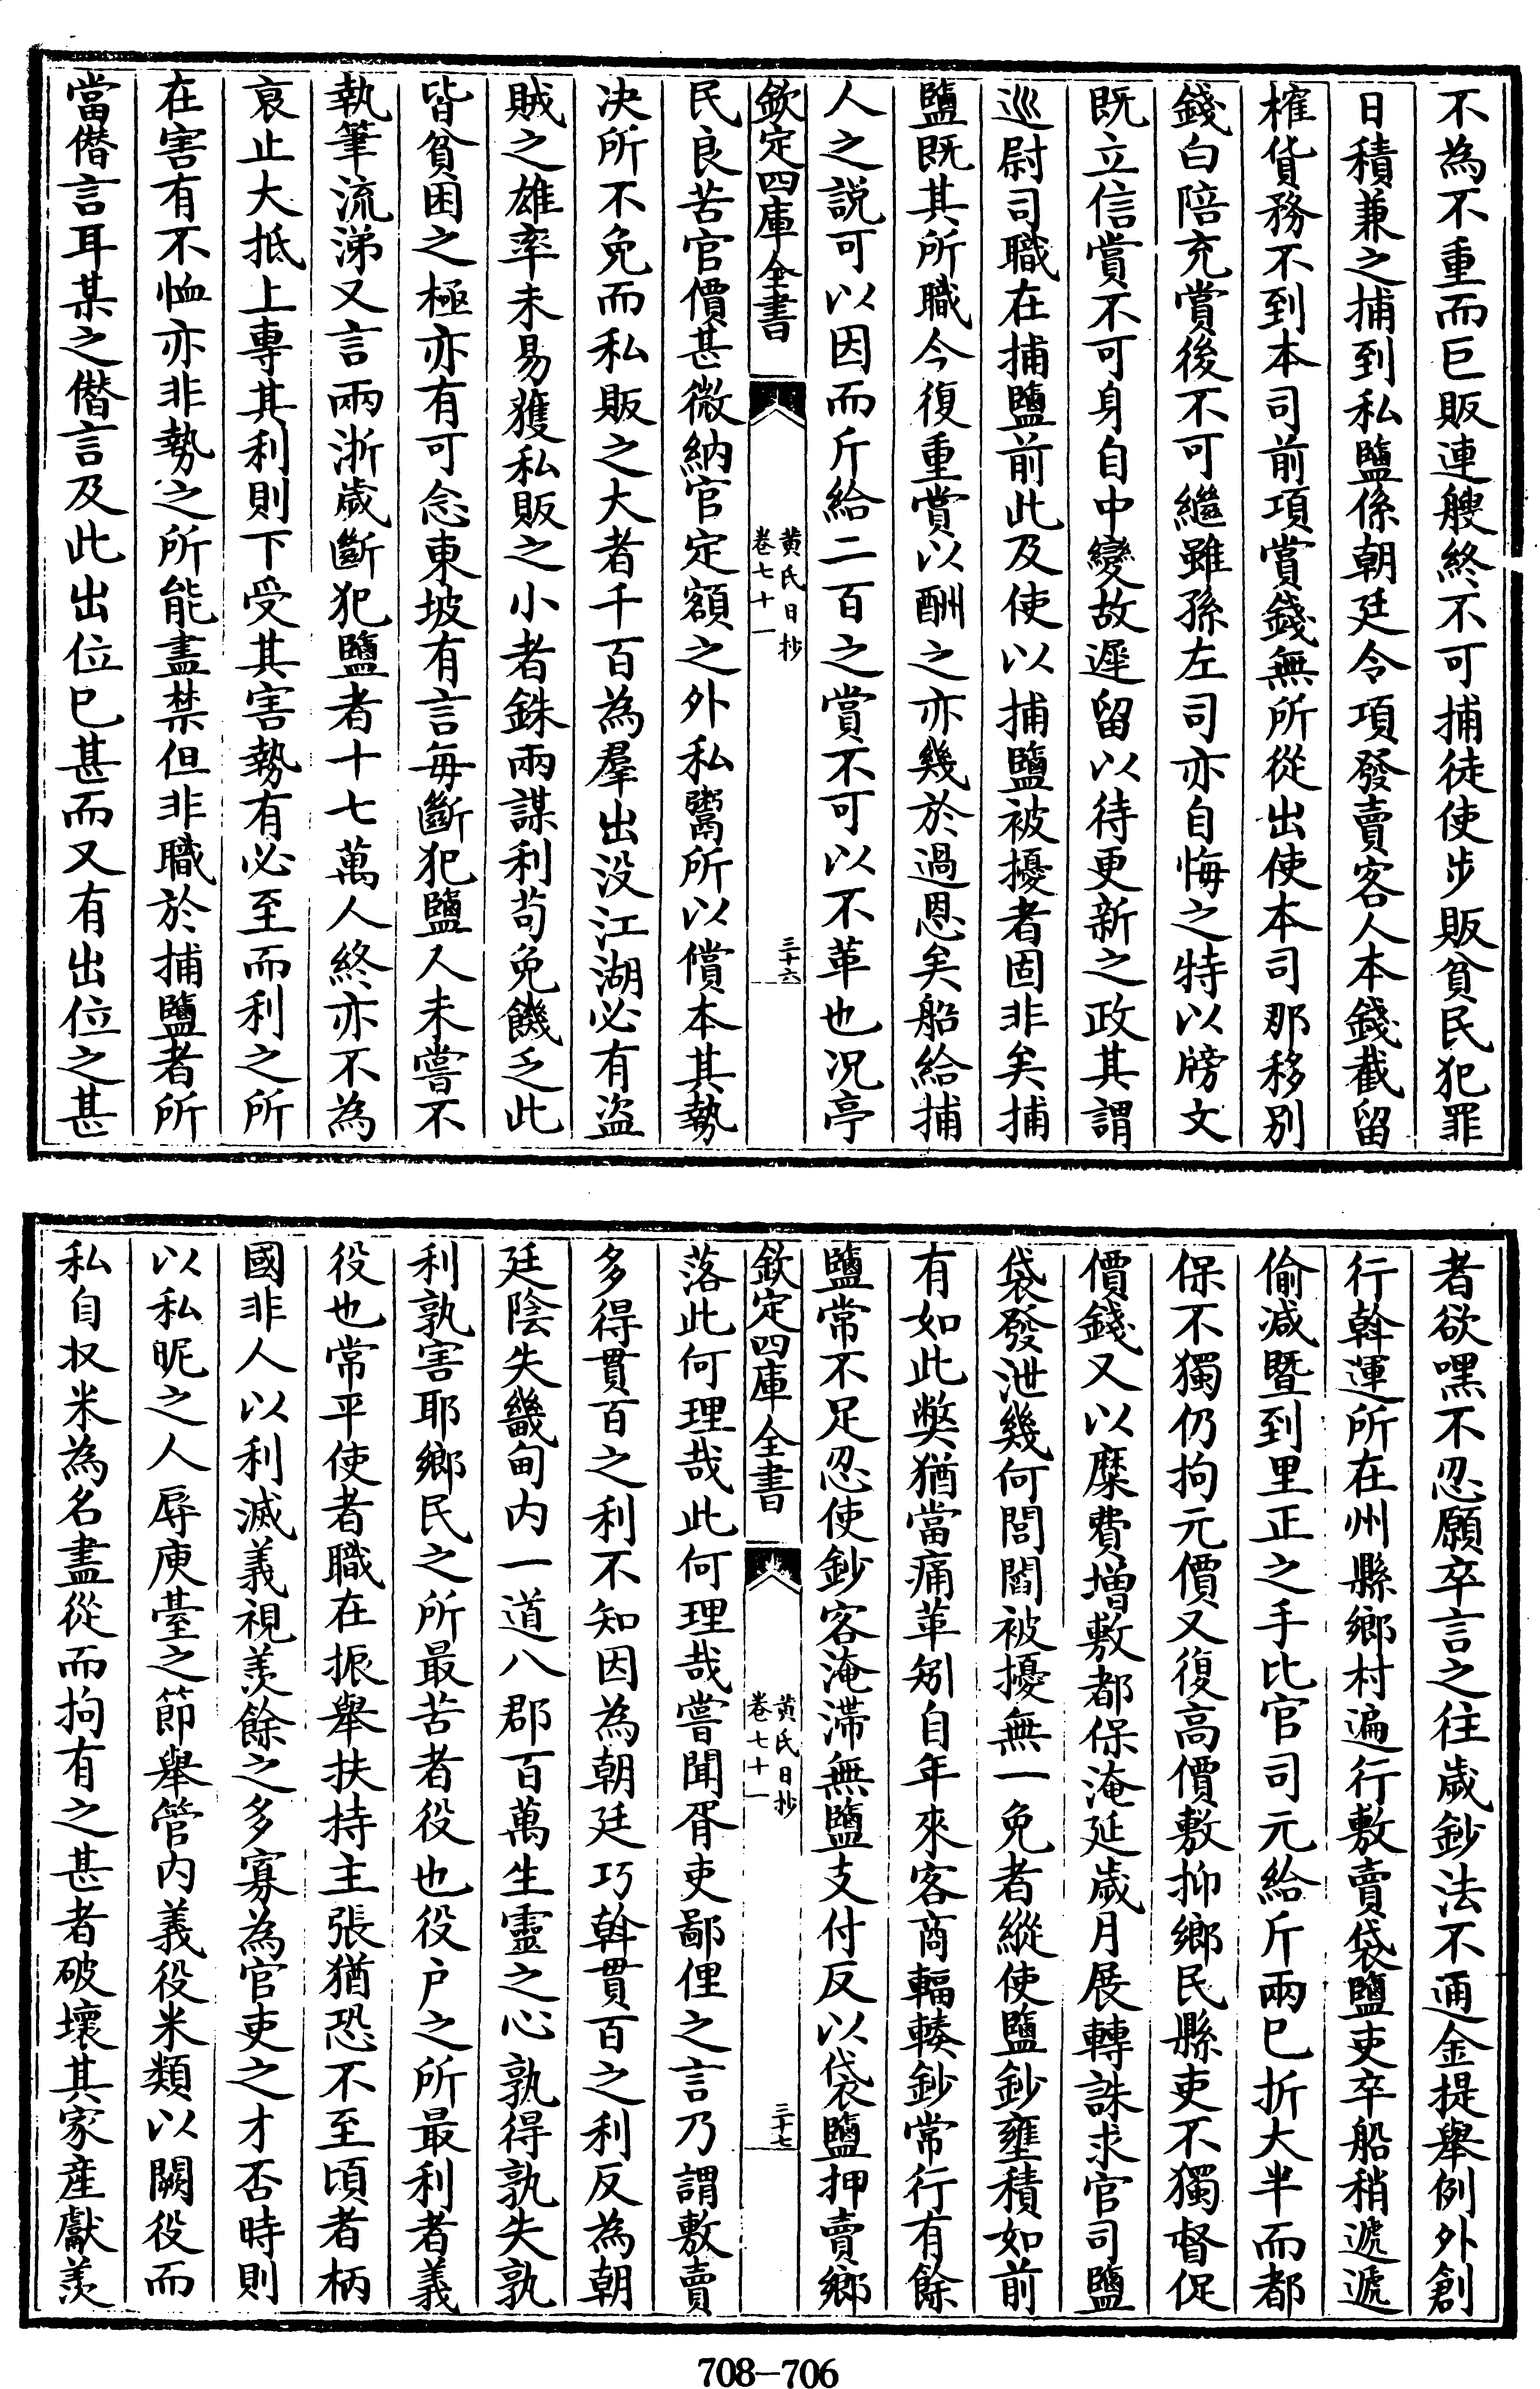 不為不重而巨販連艘終不可捕徒使步販貧民犯罪
日積兼之捕到私鹽係朝廷令項發賣客人本錢截留
榷貨務不到本司前項賞錢無所從出使本司那移別
錢白陪充賞後不可繼雖孫左司亦自悔之特以牓文
既立信賞不可身自中變故遲留以待更新之政其謂
巡尉司職在捕鹽前此及使以捕鹽被擾者固非矣捕
鹽既其所職今復重賞以酬之亦幾於過恩矣船給捕
人之説可以因而斤給二百之賞不可以不革也况亭
欽定四庫全書
黄氏日抄
卷七十一
三十六
民良苦官價甚微納官定額之外私鬻所以償本其勢
决所不免而私販之大者千百為羣出没江湖必有盗
賊之雄率未易獲私販之小者銖兩謀利茍免饑乏此
皆貧困之極亦有可念東坡有言每斷犯鹽人未嘗不
執筆流涕又言兩浙歲斷犯鹽者十七萬人終亦不為
衰止大抵上專其利則下受其害勢有必至而利之所
在害有不恤亦非勢之所能盡禁但非職於捕鹽者所
當僭言耳某之僭言及此出位已甚而又有出位之甚
者欲嘿不忍願卒言之往歲鈔法不通金提舉例外創
行斡運所在州縣鄉村遍行敷賣袋鹽吏卒船稍遞遞
偷减暨到里正之手比官司元給斤兩已折大半而都
保不獨仍拘元價又復高價敷抑鄉民縣吏不獨督促
價錢又以糜費增敷都保淹延歲月展轉誅求官司鹽
袋發泄幾何閭閻被擾無一免者縱使鹽鈔壅積如前
有如此獘猶當痛革矧自年來客商輻輳鈔常行有餘
鹽常不足忍使鈔客淹滯無鹽支付反以袋鹽押賣鄉
欽定四庫全書
黄氏日抄
卷七十一
三十七
落此何理哉此何理哉嘗聞胥吏鄙俚之言乃謂敷賣
多得貫百之利不知因為朝廷巧斡貫百之利反為朝
廷陰失畿甸内一道八郡百萬生靈之心孰得孰失孰
利孰害耶鄉民之所最苦者役也役户之所最利者義
役也常平使者職在振舉扶持主張猶恐不至頃者柄
國非人以利滅義視羨餘之多寡為官吏之才否時則
以私昵之人辱庾臺之節舉管内義役米類以闕役而
私自收米為名盡從而拘有之甚者破壞其家産獻羨